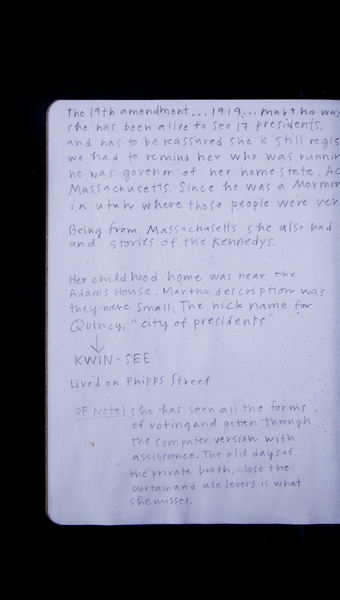 The 19th amendment...1919...martha was
she has been alive to see 17 presidents.
and has to be reassured she is still regis
we had to remind her who was runnin
he was governor of her home state. Ac
Massachusetts. Since he was a Mormon
in utah where those people were ver
Being from Massachusetts she also had
and stories of the Kennedys.
Her childhood home was near the
Adams House. Martha description was
they were small. The nick name for
Quincy, "city of presidents"
↓
KWIN-SEE
Lived on Phipps Street
OF Note| she has seen all the forms
of voting and gotten through
the computer version with
assistance. The old days of
the private booth, close the
curtain and use levers is what
she misses.